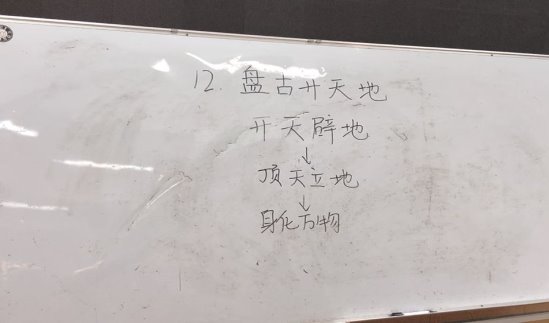 12. 盘古开天地
开天辟地
↓
顶天立地
↓
身化万物